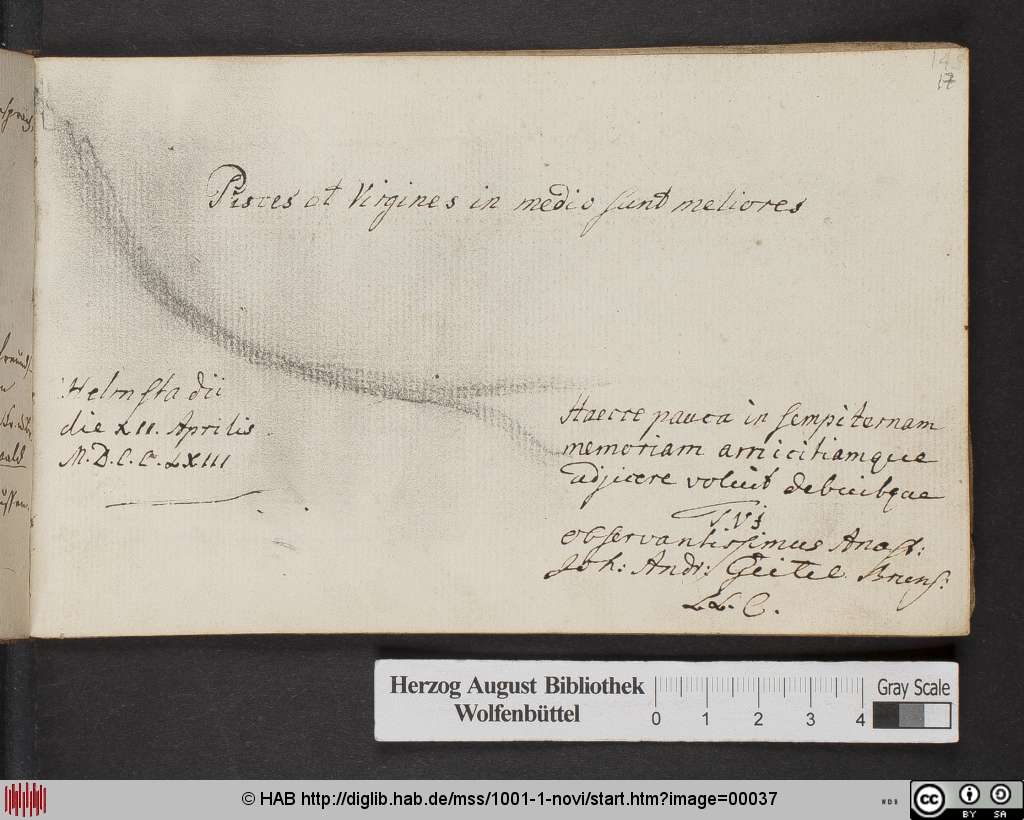 143
17
Pisces et Virgines in medio sunt meliores
Helmstadii
die XII. Aprilis
M.D.C.C.LXIII
Haecce pauca in sempiternam
memoriam amicitiamque
adjicere voluit debuitque
observantissimus
Joh: Andr: Geitel Bruns:
LL. C.
Herzog August Bibliothek
Wolfenbüttel
0 1 2 3 4
Gray Scale
© HAB http://diglib.hab.de/mss/1001-1-novi/start.htm?image=00037
cc BY SA